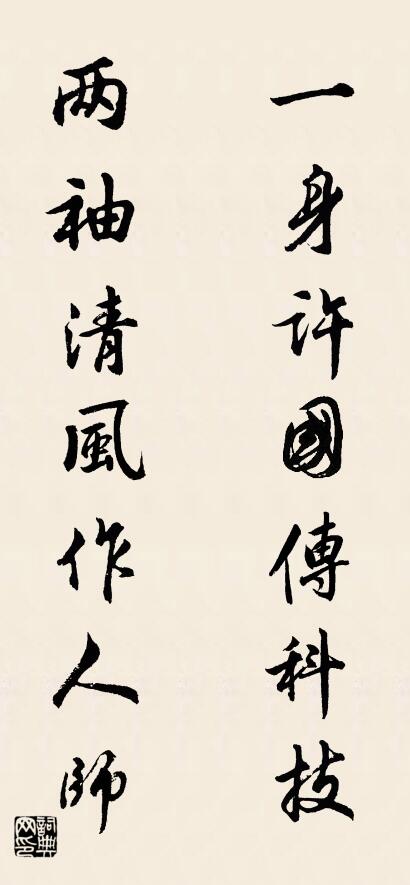 一身許國傳科技
两袖清風作人師
詞典网印